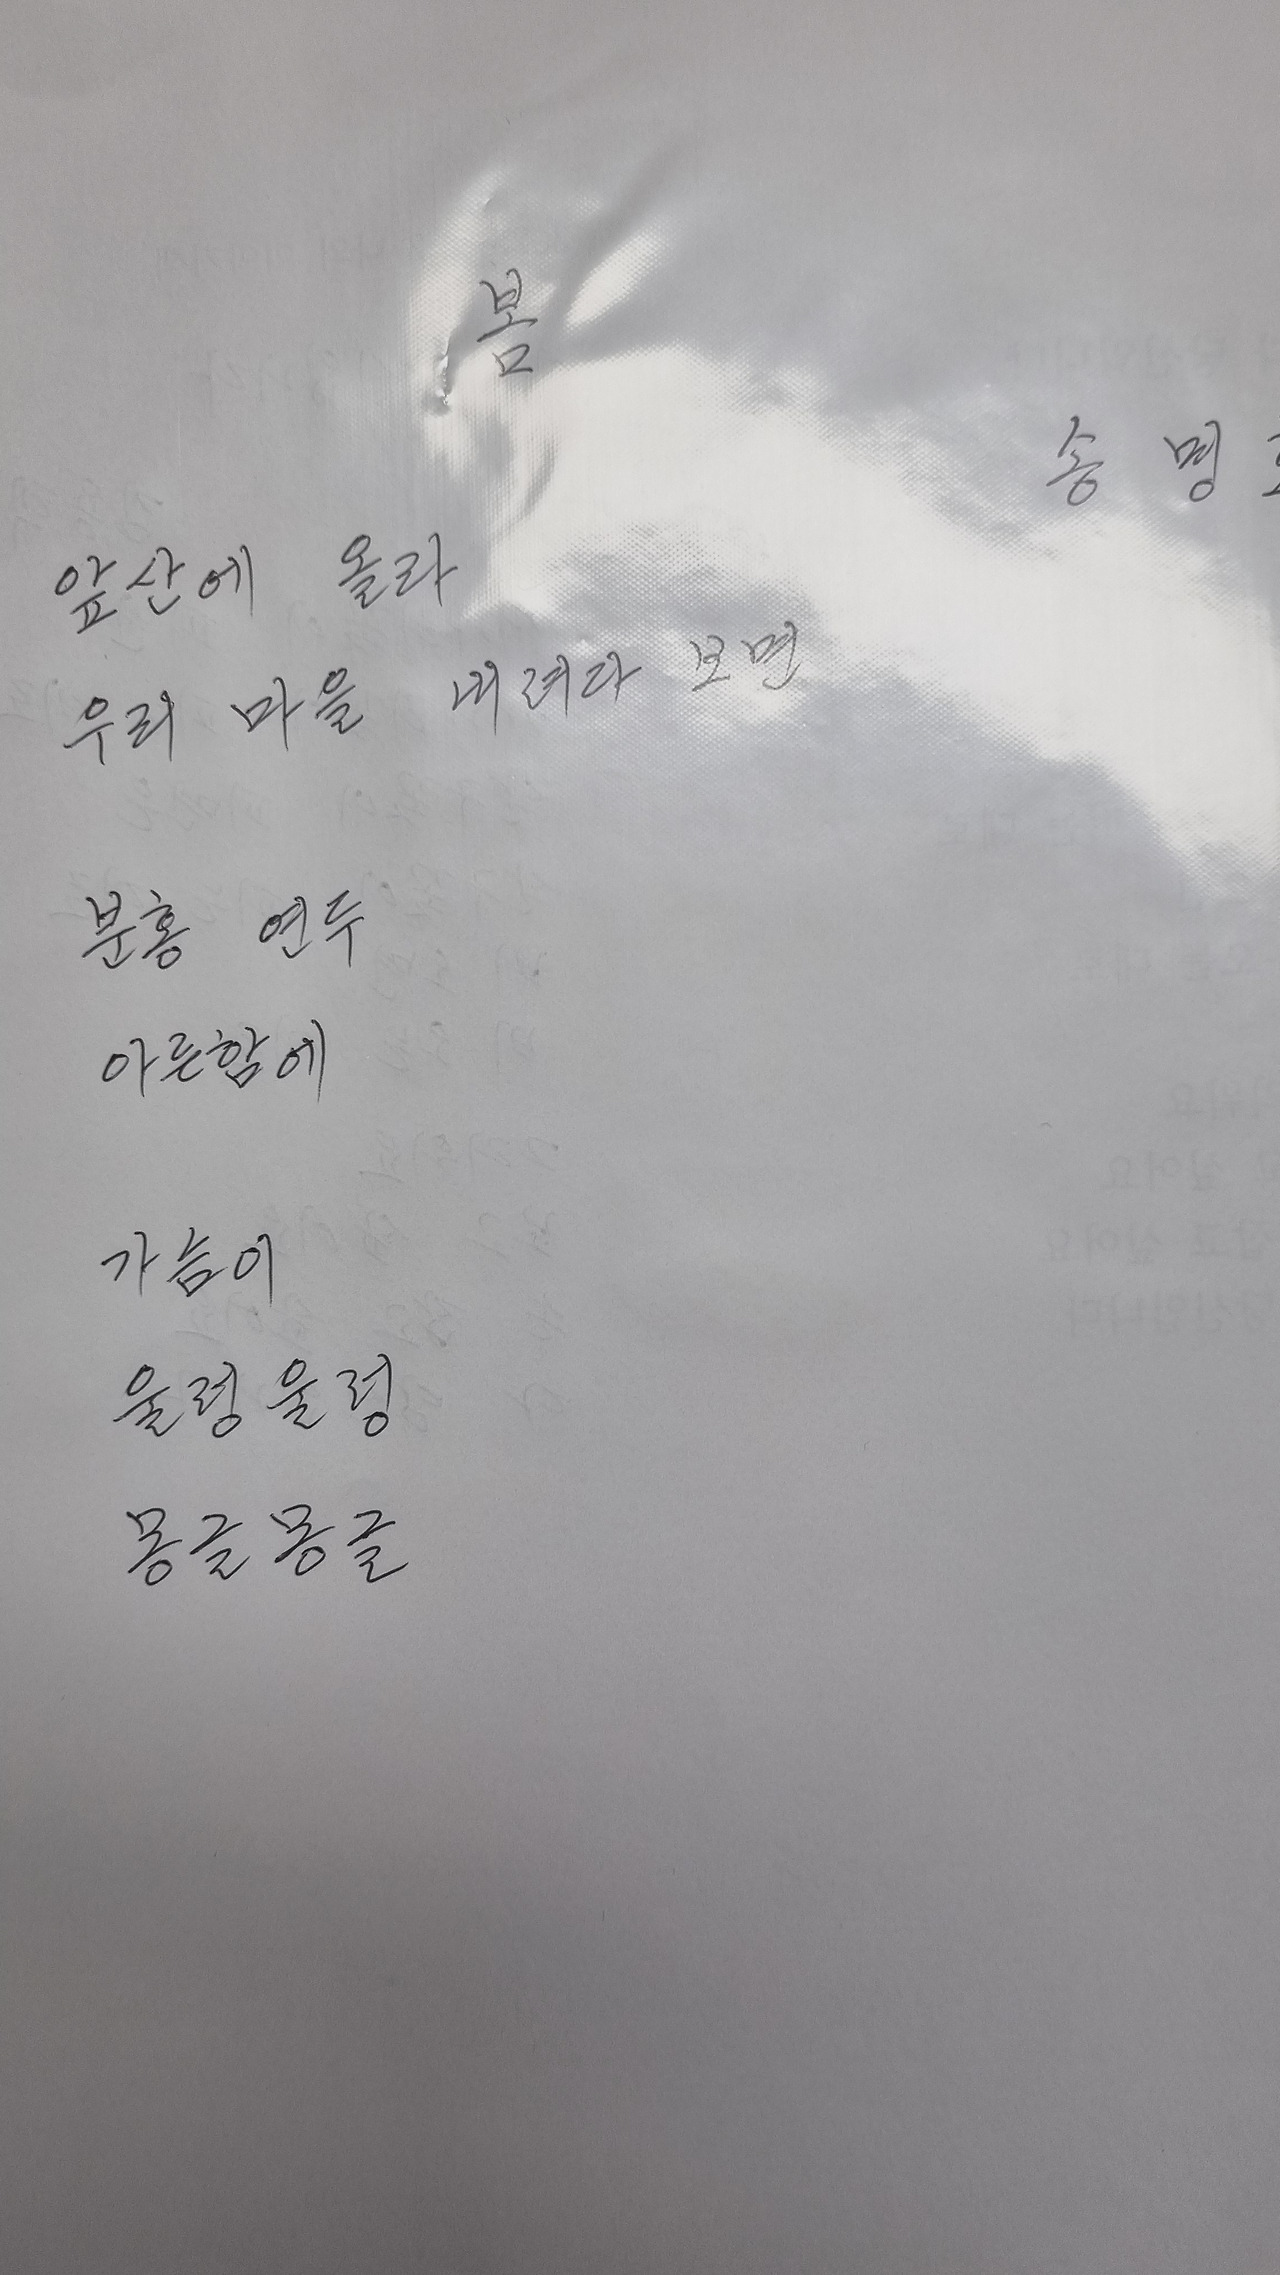 봄
송 명
앞산에 올라
우리 마을 내려다 보면
분홍 연두
아른함에
가슴이
울렁울렁
몽글몽글